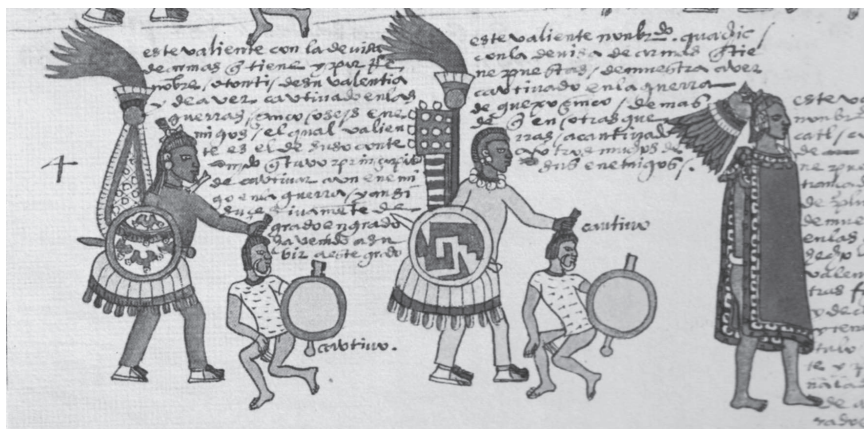 4
este valiente con la devisa
de armas q̃ tiene y por rre
nonbre / otonti / de su valentia
y de aver cavtivado en las
guerras / cinco o seys ene
migos / el qual valien
te es el de suso conte
nido q̃ tuvo principio
de cavtivar a vn enemi
go en la guerra / y ansi
suçesivamẽte de
grado en grado
a venido a su
bir a este grado
cavtivo.
este valiente nonbrdo. quachic
con la devisa de armas q̃ tie
ne puestas / demuestra aver
cavtivado en la guerra
de guexoçinco / demas
de q̃ en otras gue
rras a cautivado
a otros muchos de
sus enemigos.
cautivo
este v
nonbr
catl
de
ne pue
de
en las
valen
tras